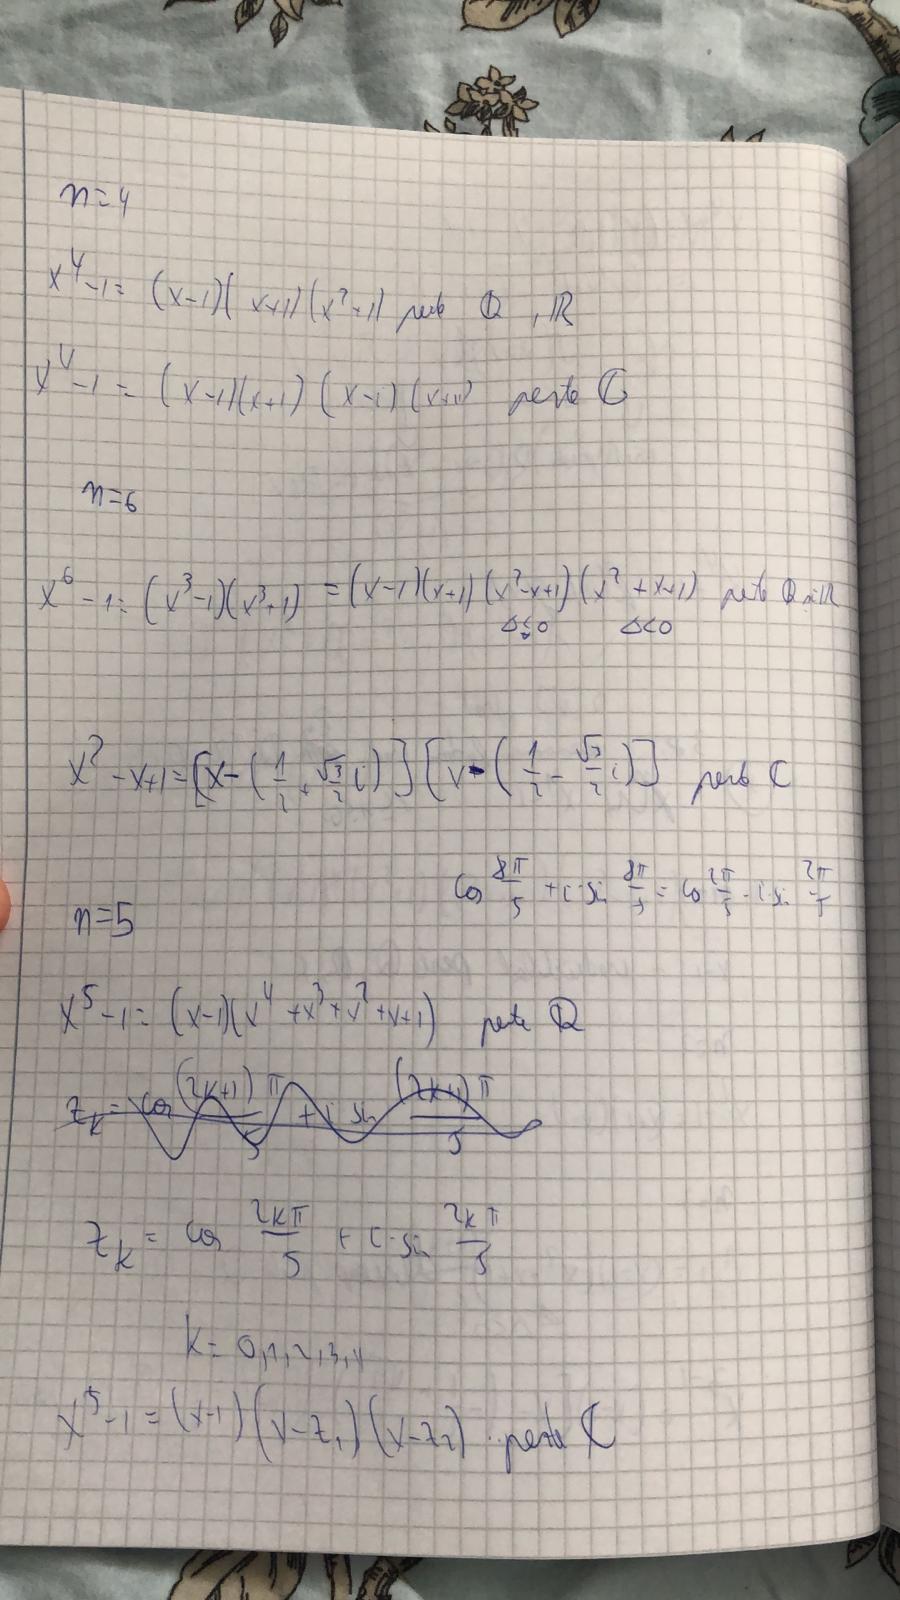 n=4
x⁴-1= (x-1)(x+1)(x²+1) peste Q, R
x⁴-1 = (x-1)(x+1)(x-i)(x+i) peste C
n=6
x⁶-1=(x³-1)(x³+1) = (x-1)(x+1)(x²-x+1)(x²+x+1) peste Q R
Δ<0 Δ<0
x²-x+1=[x-(1/2+√3/2 i)][x-(1/2-√3/2 i)] peste C
cos 8π/5 + i·sin 8π/5 = cos 2π/5 - i·sin 2π/5
n=5
x⁵-1= (x-1)(x⁴+x³+x²+x+1) peste Q
z_k = cos (2k+1)π/5 + i sin (2k+1)π/5
z_k = cos 2kπ/5 + i·sin 2kπ/5
k= 0,1,2,3,4
x⁵-1=(x-1)(x-z₁)(x-z₂). peste C